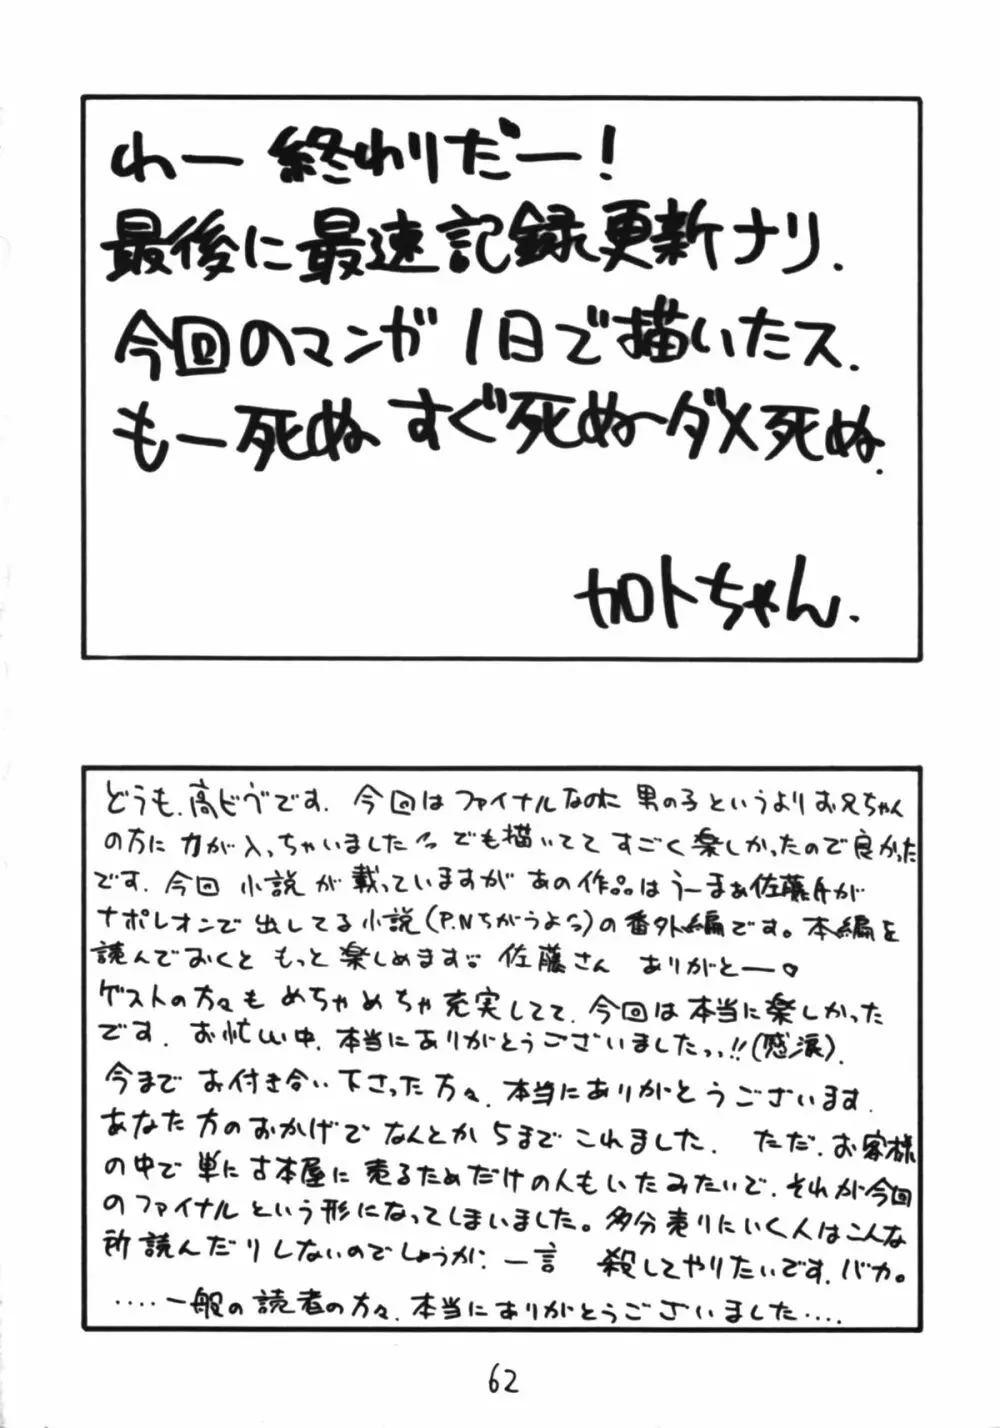 わー 終わりだー!
最後に最速記録更新ナリ.
今回のマンガ1日で描いたス.
もー死ぬ すぐ死ぬ〜ダメ死ぬ.
カロトちゃん.
どうも、高ビヴです. 今回はファイナルなので 男の子というよりお兄ちゃん
の方に力が入っちゃいました でも描いてて すごく楽しかったので良かった
です. 今回 小説が載っていますが あの作品はうーまぁ佐藤さんが
ナポレオンで出してる小説(P.Nちがうよ)の番外編です。本編を
読んでおくと もっと楽しめます。佐藤さん ありがとー♡
ゲストの方々も めちゃめちゃ充実してて、今回は本当に楽しかった
です. お忙しい中、本当にありがとうございましたっっ!!(感涙).
今まで お付き合い下さった方々、本当にありがとうございます.
あなた方のおかげで なんとか5まで これました. ただ、お客様
の中で 単に古本屋に売るためだけの人もいたみたいで、それが今回
のファイナルという形になってしまいました。多分売りにいく人はこんな
所読んだりしないのでしょうが、一言 殺してやりたいです.バカ。
‥‥一般の読者の方々、本当にありがとうございました‥‥
62